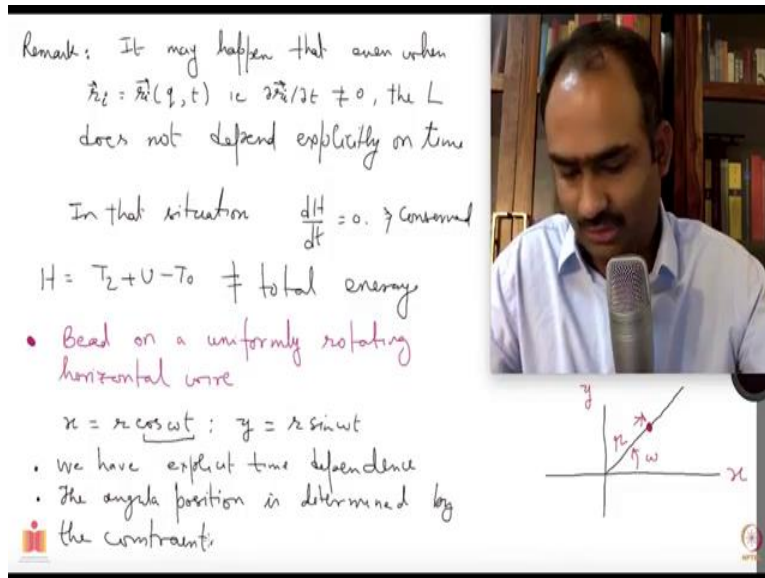 Remark: It may happen that even when
r⃗i = r⃗i(q, t) ie ∂r⃗i/∂t ≠ 0, the L
does not depend explicitly on time
In that situation dH/dt = 0. } Conserved
H = T₂ + U - T₀ ≠ total energy
• Bead on a uniformly rotating
horizontal wire
x = r cos ωt ; y = r sin ωt
• We have explicit time dependence
• The angula position is determined by
the constraint.
y
r
ω
x
NPTEL